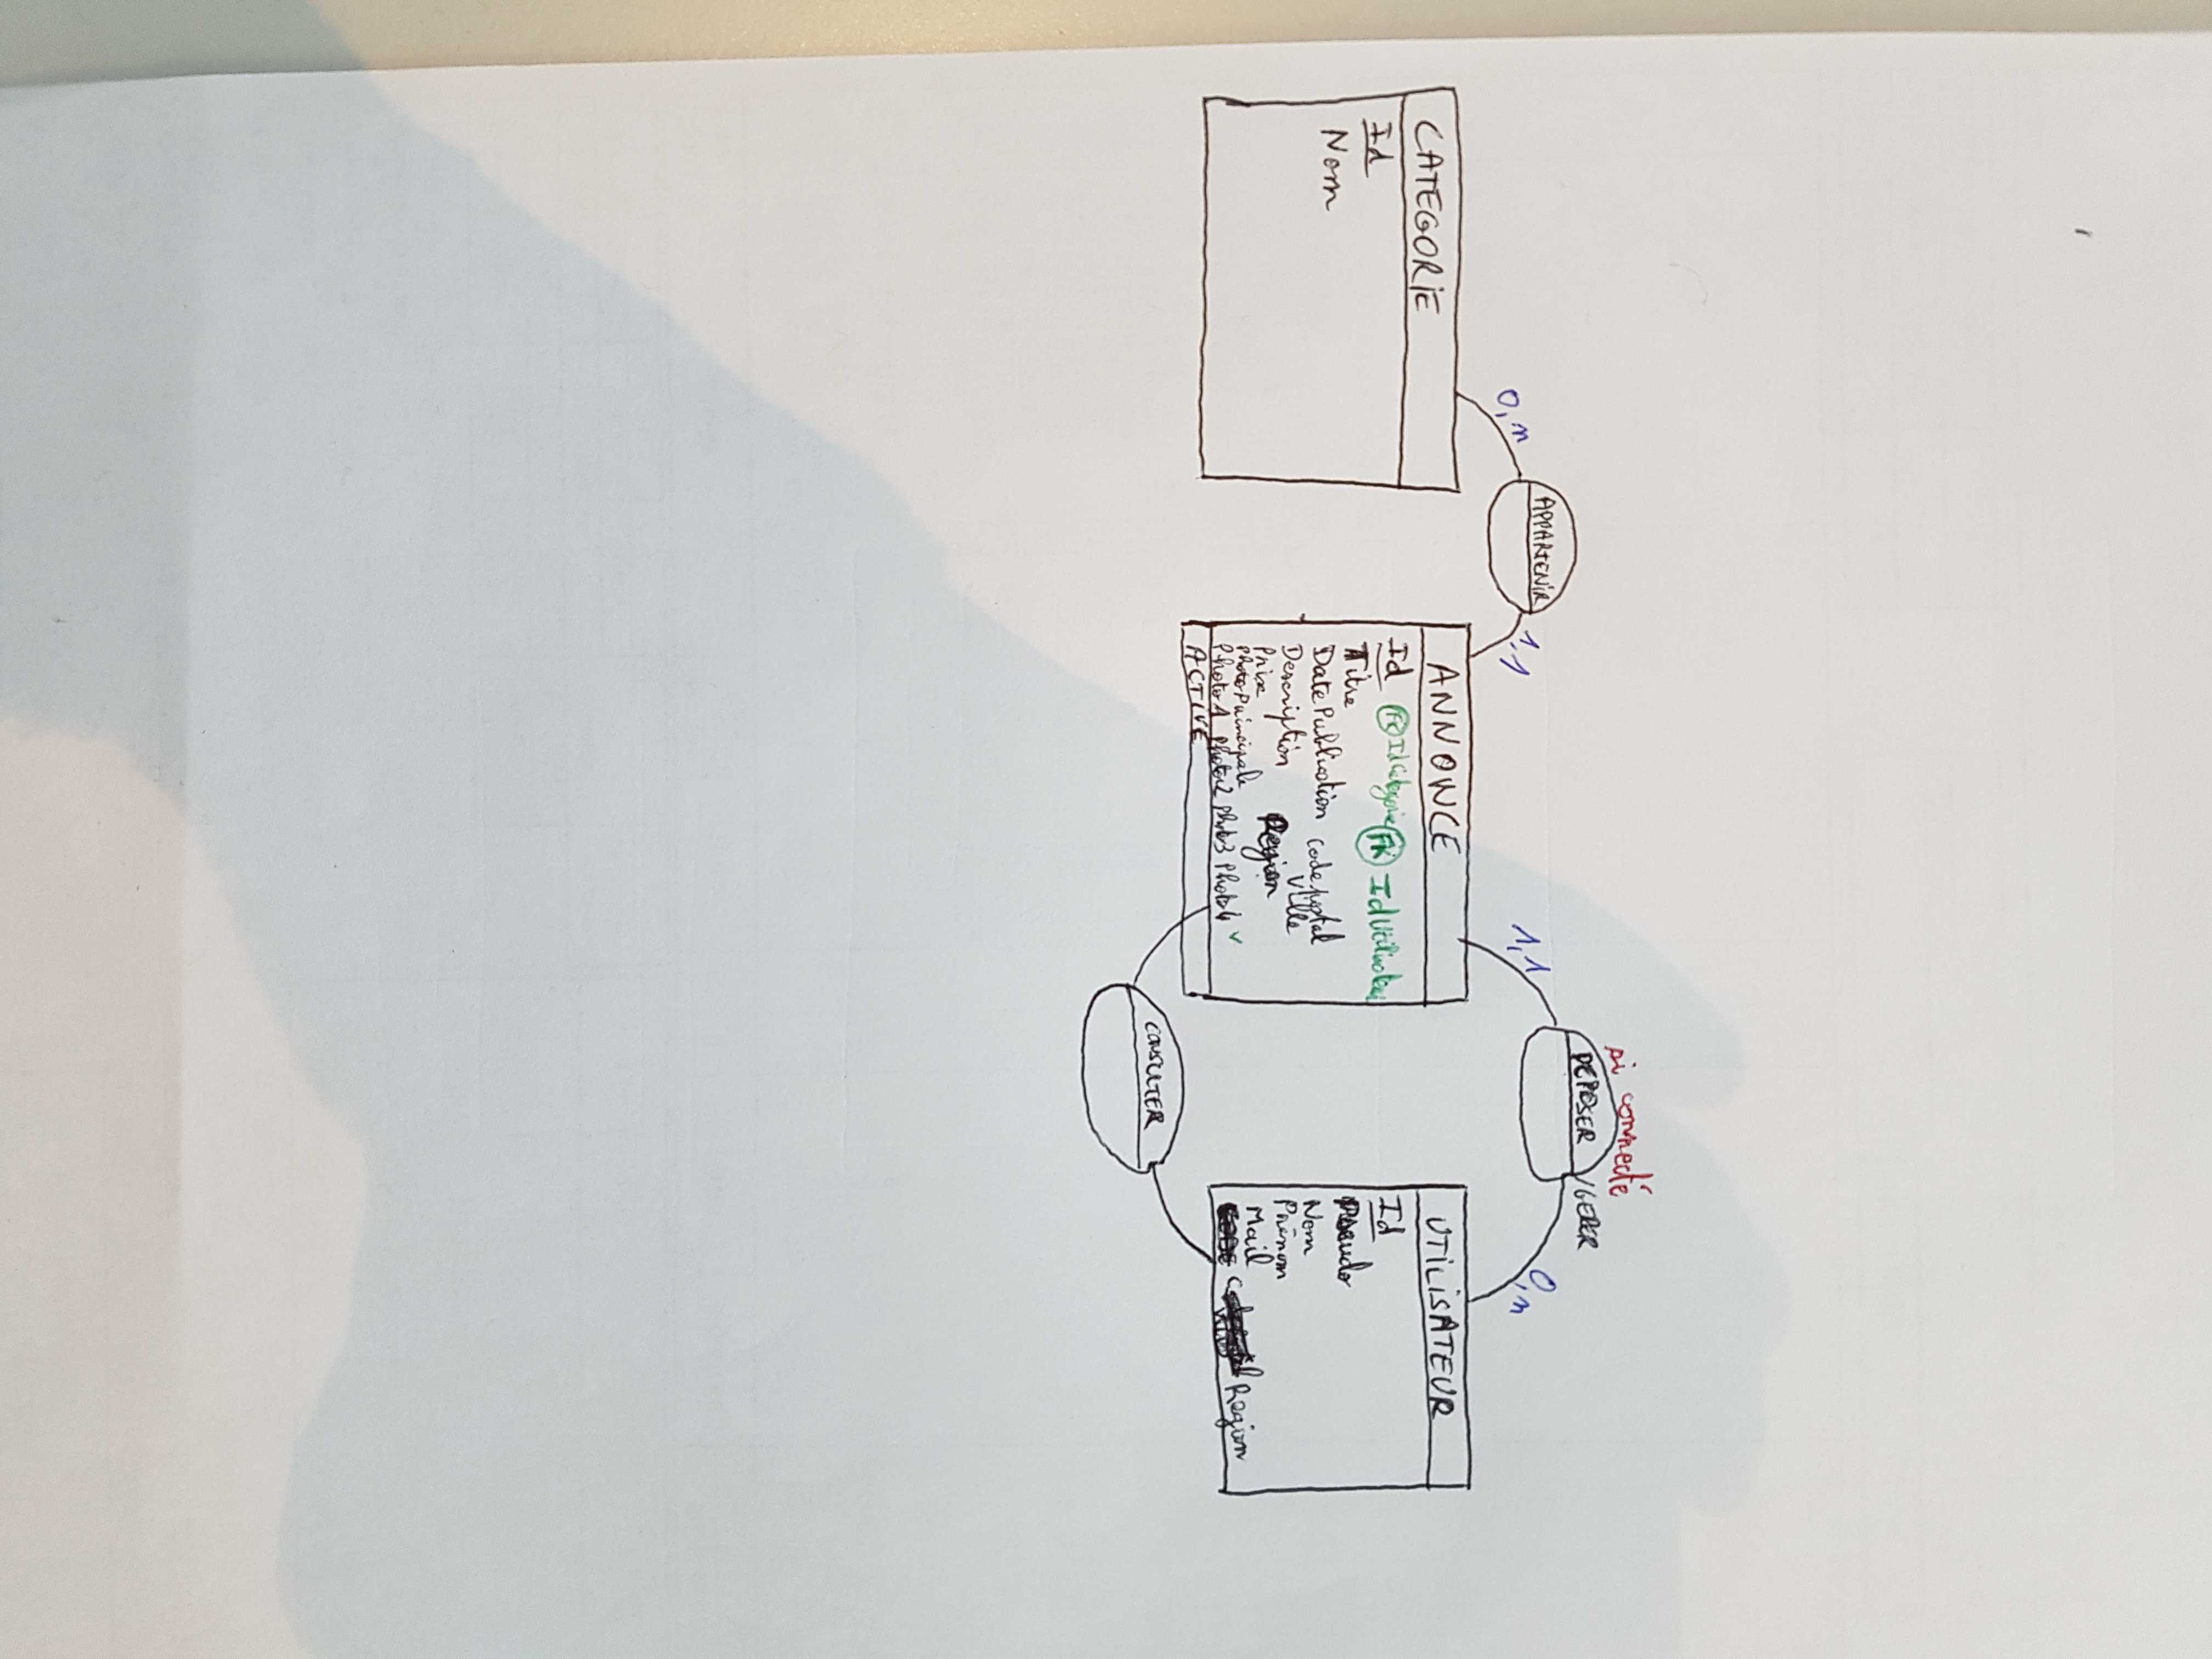 CATEGORIE
Id
Nom
0,n
APPARTENIR
1,1
ANNONCE
Id FK IdCategorie FK IdUtilisateur
Titre
Date Publication code postal
Description Ville
Prix Region
photo Principale
Photo 1 photo 2 photo 3 Photo 4
ACTIVE
1,1
si connecté
DEPOSER / GERER
0,n
CONSULTER
UTILISATEUR
Id
Pseudo
Nom
Prénom
Mail
Region